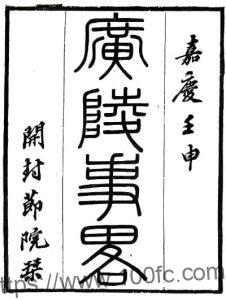 嘉慶壬申
廣陵事畧
開封節院棊
https://www.100fc.com